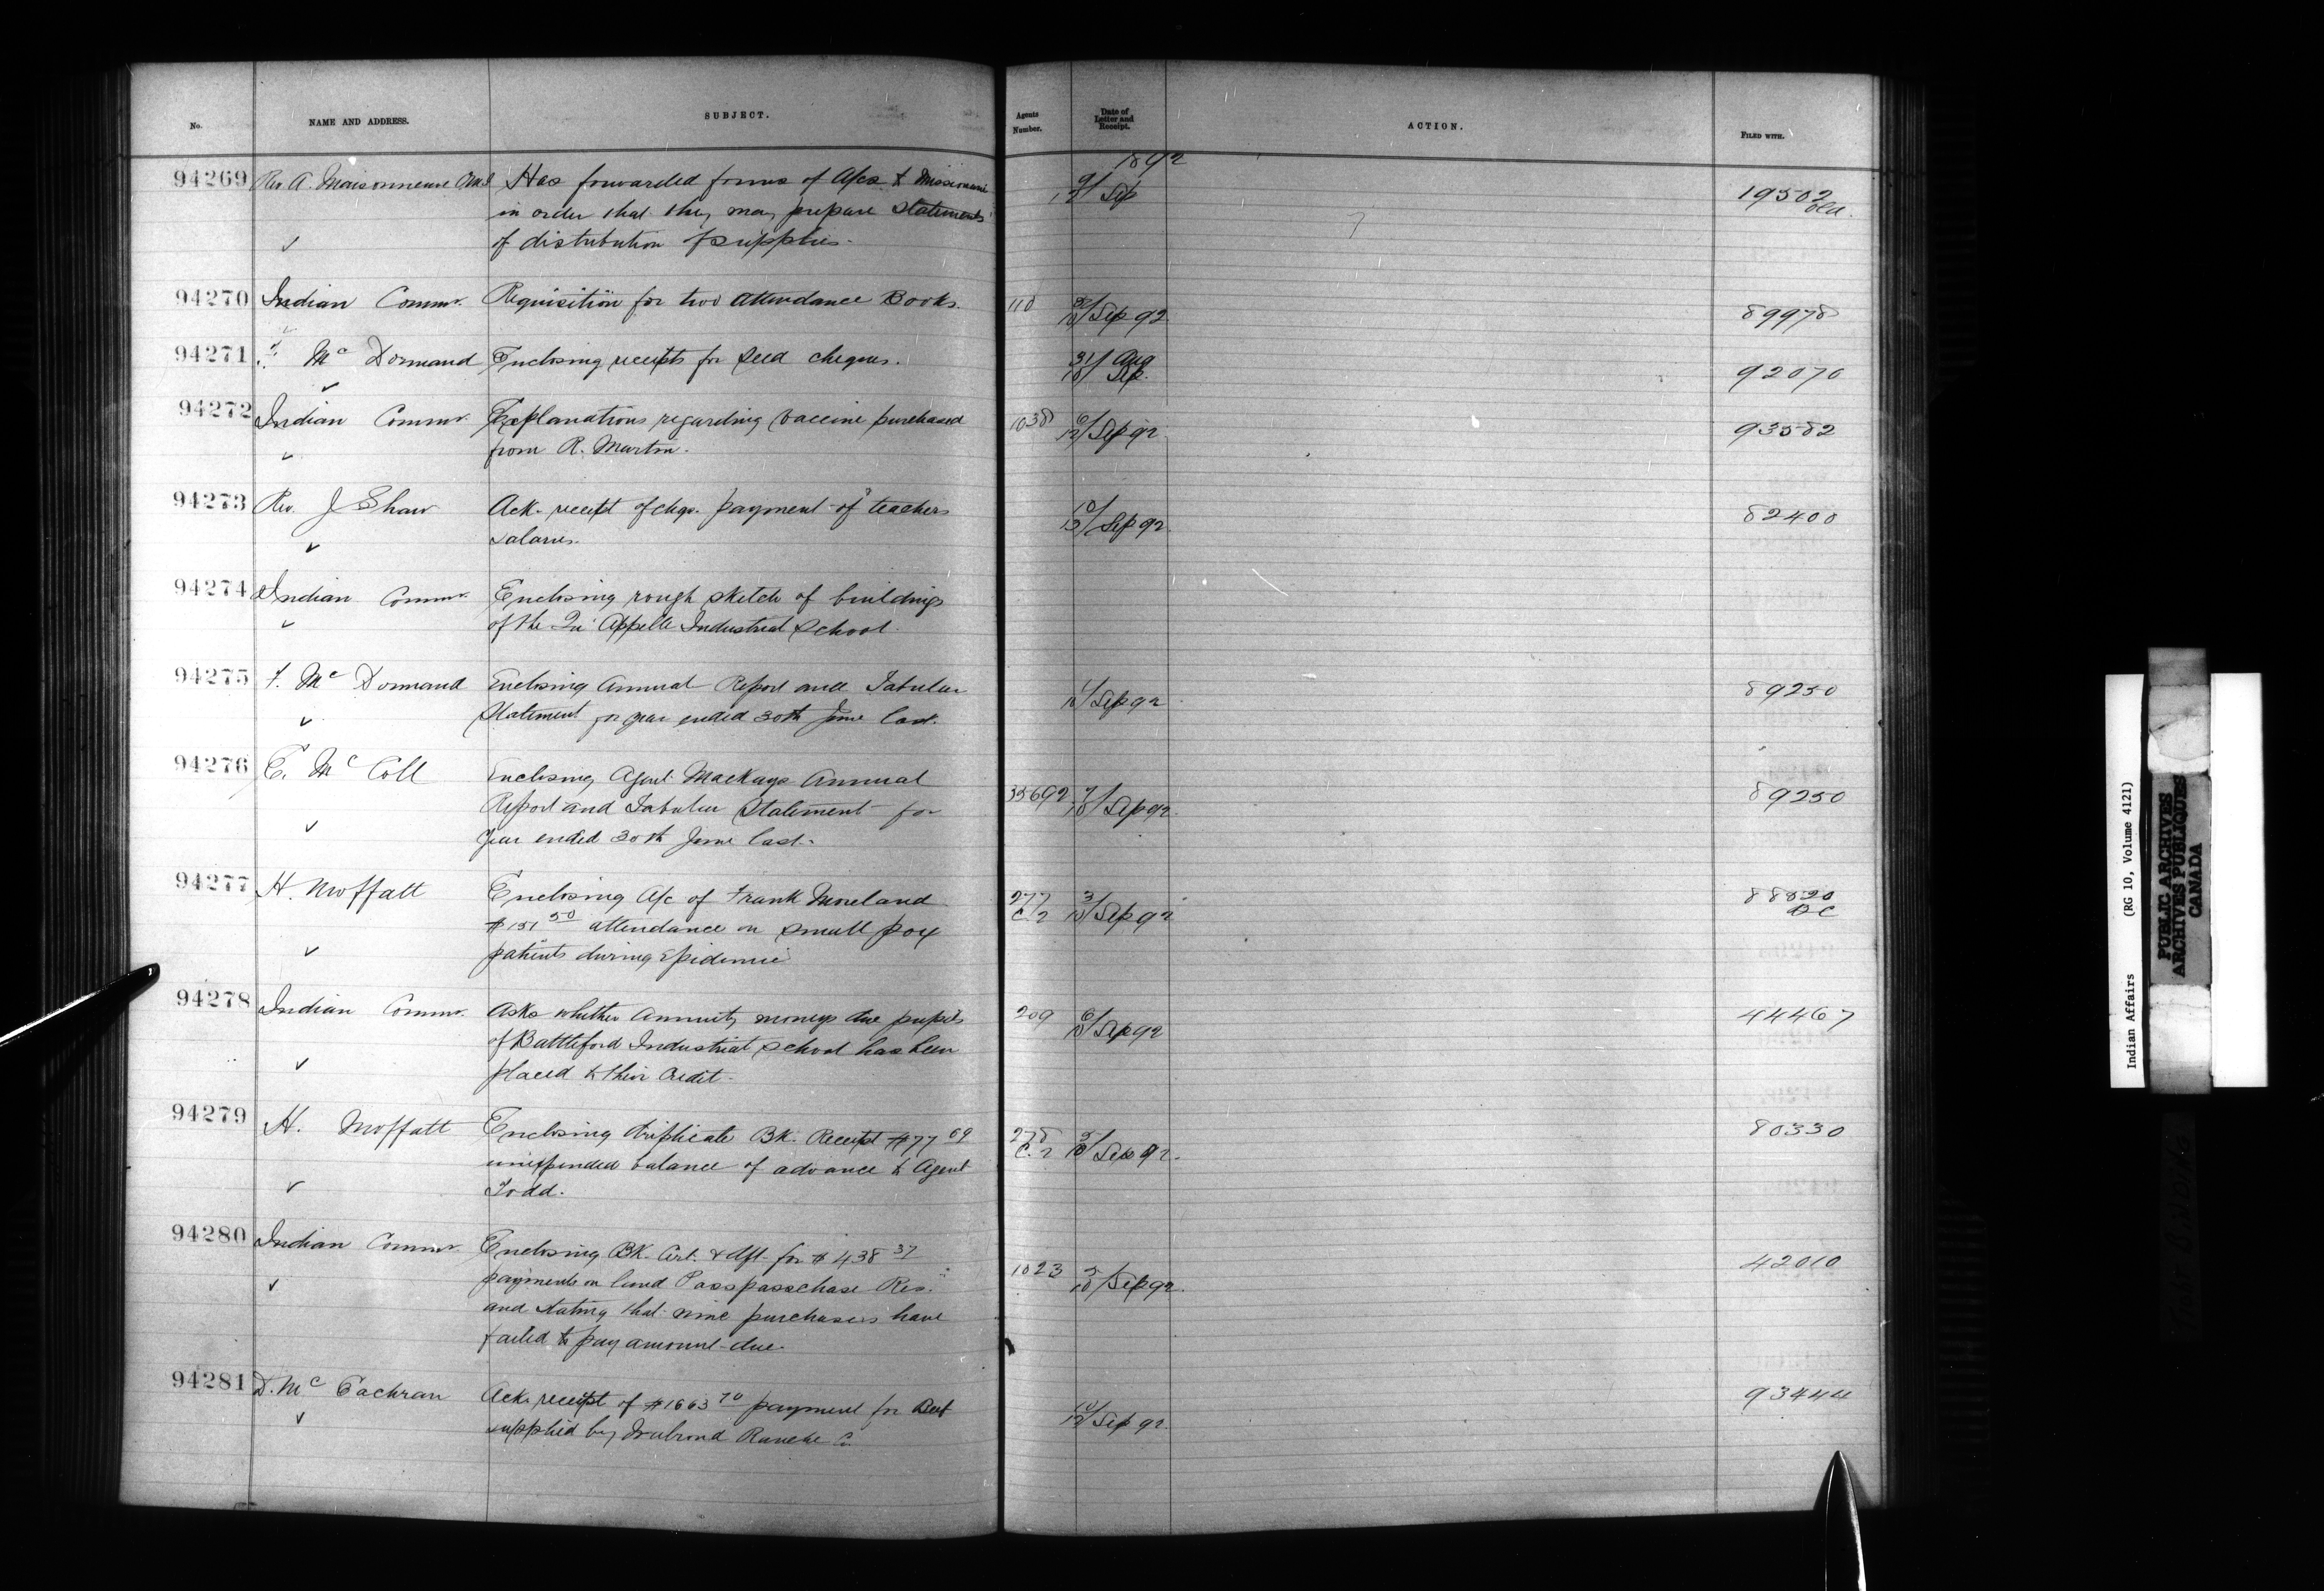 No. NAME AND ADDRESS. SUBJECT. Agents Number. Date of Letter and Receipt. ACTION. FILED WITH.
1892
94269 Rev A. Maisonneuve OMI Has forwarded forms of A/cs to Missionaries 9/12 Sep 19502
in order that they may prepare statements old.
of distribution of supplies.
94270 Indian Commr. Requisition for two Attendance Books. 110 /Sep 92 89978
94271 McDormand Enclosing receipts for seed cheques. 31/ Aug 92070
10/ Sep.
94272 Indian Commr. Explanations regarding vaccine purchased 1038 6/12/Sep 92 93582
from R. Martin.
94273 Rev. J Shaw Ack. receipt of chqs. payment of teachers 10/13/Sep 92 82400
salaries.
94274 Indian Commr. Enclosing rough sketch of buildings
of the Qu'Appelle Industrial School.
94275 F. McDormand Enclosing Annual Report and Tabular /Sep 92 89250
Statement for year ended 30th June last.
94276 E. McColl Enclosing Agent Mackays Annual
Report and Tabular Statement for 35692 7/10/Sep 92 89250
year ended 30th June last.
94277 H. Moffatt Enclosing A/c of Frank Moreland 277 3/10/Sep 92 88820
$151 50 attendance on small pox C. 2 BC
patients during Epidemic
94278 Indian Commr. Asks whether Annuity moneys due pupils 209 6/10/Sep 92 44467
of Battleford Industrial School has been
placed to their Credit.
94279 H. Moffatt Enclosing triplicate Bk. Receipt $77 69 278 5/10/Sep 92. 80330
unexpended balance of advance to Agent C. 2
Todd.
94280 Indian Commr. Enclosing Bk. Cert. & dft. for $438 37 42010
payments on land Passpasschase Res. 1023 5/10/Sep 92.
and stating that nine purchasers have
failed to pay amount due.
94281 D. McEachran Ack. receipt of $1663 70 payment for Beef 10/12/Sep 92. 93444
supplied by Walrond Ranche Co.
Indian Affairs (RG 10, Volume 4121)
PUBLIC ARCHIVES
ARCHIVES PUBLIQUES
CANADA